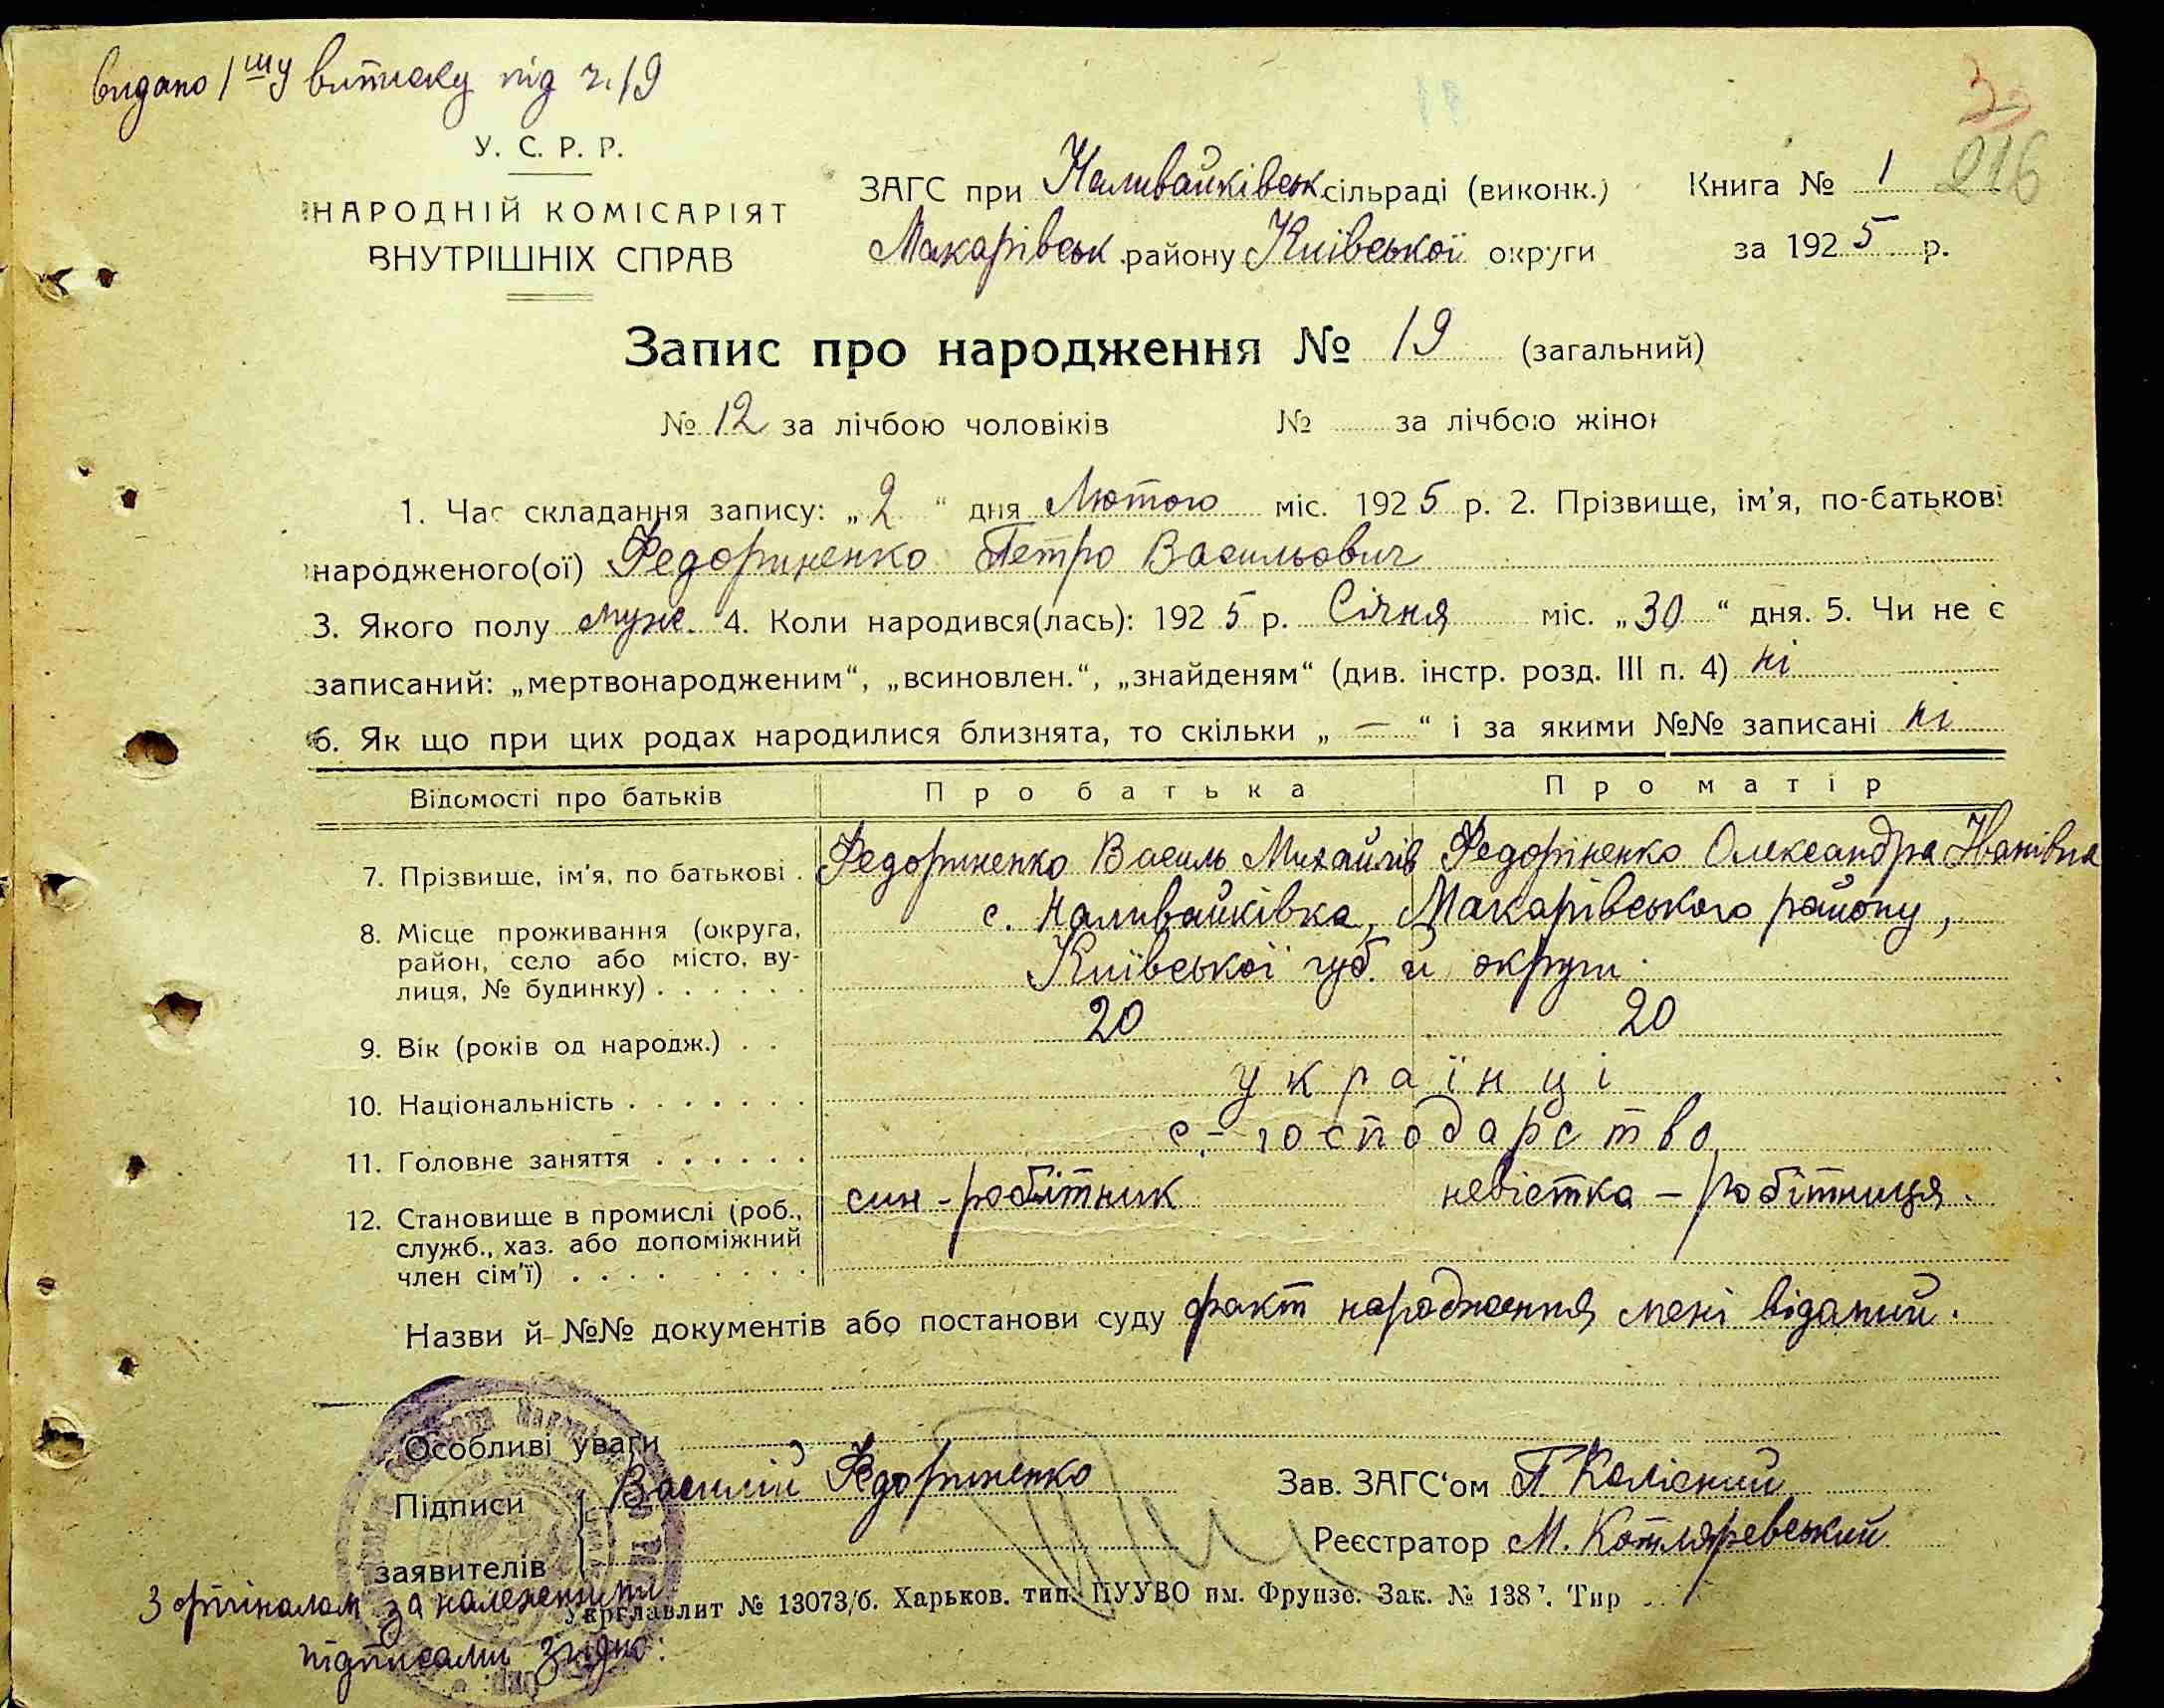 видано 1шу витиску під ч. 19
У. С. Р. Р.
НАРОДНІЙ КОМІСАРІЯТ
ВНУТРІШНІХ СПРАВ
ЗАГС при Наливайківськ. сільраді (виконк.)
Макарівськ. району Київської округи
Книга № 1
216
за 1925 р.
Запис про народження № 19 (загальний)
№ 12 за лічбою чоловіків № за лічбою жінок
1. Час складання запису: „2“ дня Лютого міс. 1925 р. 2. Прізвище, ім'я, по-батькові
народженого(ої) Федориненко Петро Васильович
3. Якого полу муж. 4. Коли народився(лась): 1925 р. Січня міс. „30“ дня. 5. Чи не є
записаний: „мертвонародженим“, „всиновлен.“, „знайденям“ (див. інстр. розд. III п. 4) ні
6. Як що при цих родах народилися близнята, то скільки „ — “ і за якими №№ записані ні
Відомості про батьків Про батька Про матір
7. Прізвище, ім'я, по батькові . Федориненко Василь Михайлів Федоріненко Олександра Іванівна
8. Місце проживання (округа, с. Наливайківка, Макарівського району,
район, село або місто, ву-
лиця, № будинку) . . . . . . Київської губ. й округи.
9. Вік (років од народж.) . . 20 20
10. Національність . . . . . . . українці
11. Головне заняття . . . . . . с.-господарство
12. Становище в промислі (роб., син - робітник невістка — робітниця.
служб., хаз. або допоміжний
член сім'ї) . . . . . . . .
Назви й №№ документів або постанови суду факт народження мені відомий.
Особливі уваги
Підписи Василій Федориненко Зав. ЗАГС'ом П Колісний
заявителів Реєстратор М. Котляревський
З орігіналом за належними
підписами згідно:
Укрглавлит № 13073/б. Харьков. тип. ЦУУВО им. Фрунзе. Зак. № 138 . Тир